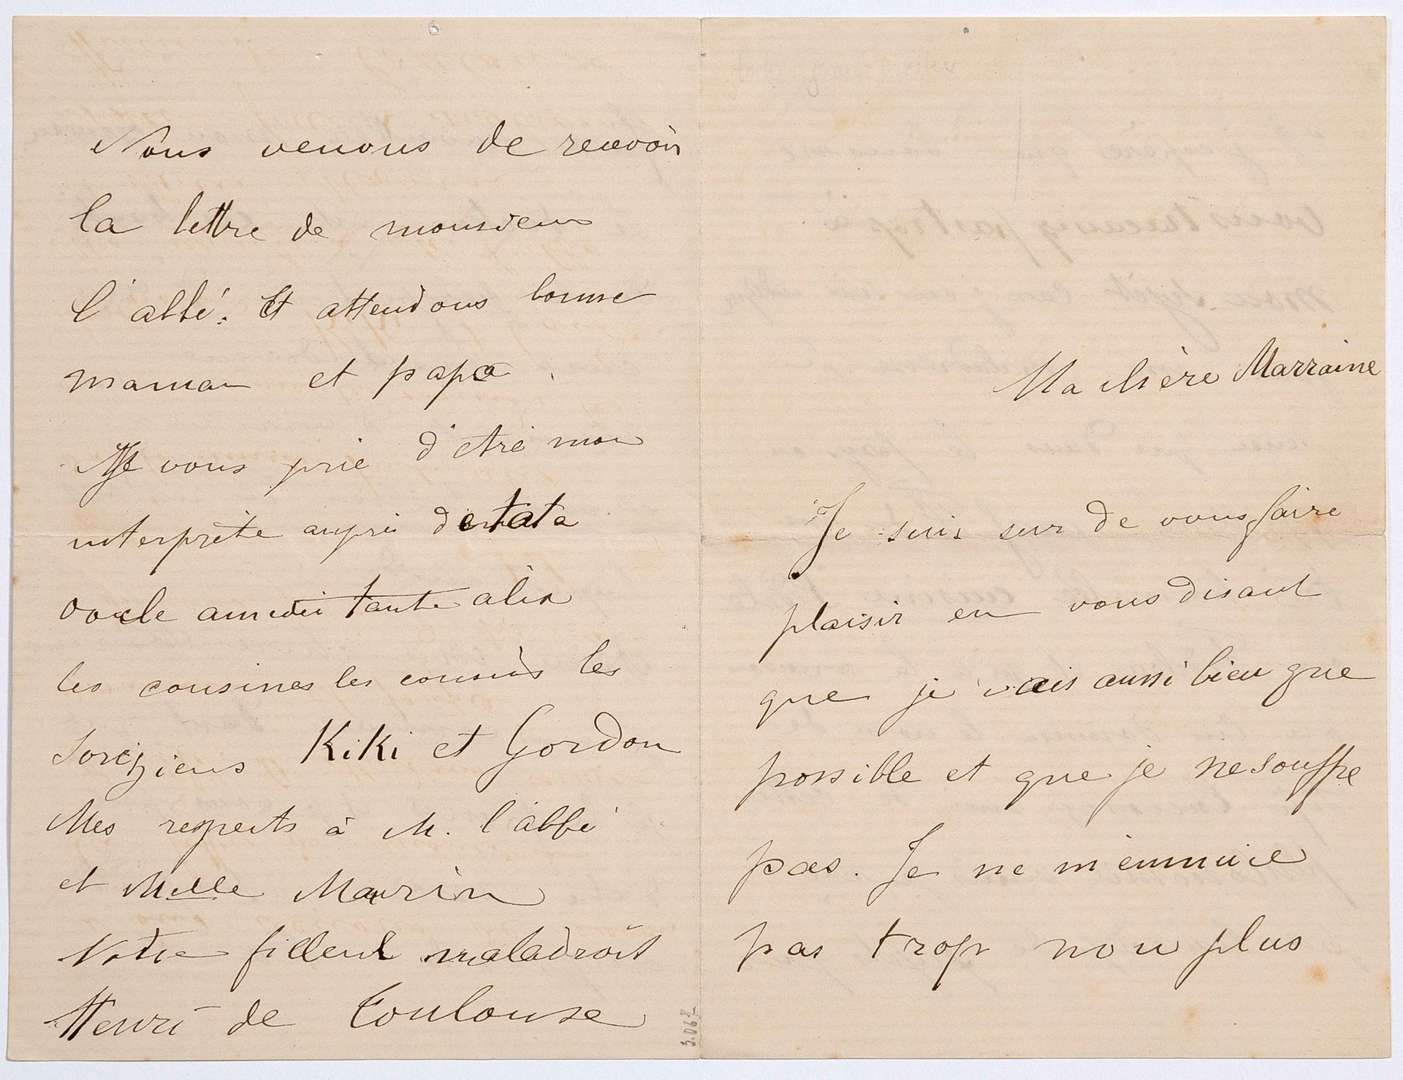 Ma chère Marraine
Je suis sur de vous faire
plaisir en vous disant
que je vais aussi bien que
possible et que je ne souffre
pas. Je ne m'ennuie
pas trop non plus
Nous venons de recevoir
la lettre de monsieur
l'abbé. Et attendons bonne
maman et papa.
Je vous prie d'etre mon
interprète auprès de tata
oncle amédée tante alix
les cousines les cousins les
Kiki et Gordon
Mes respects à M. l'abbé
et Melle Maurin
Votre filleul maladroit
Henri de Toulouse